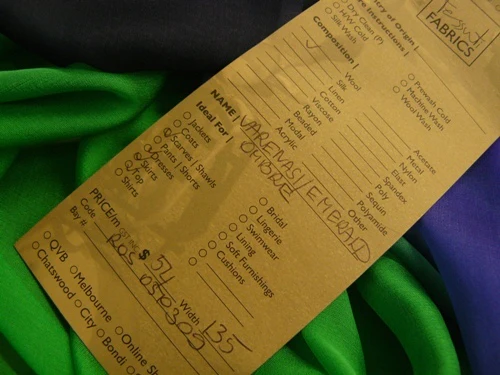 Te-ssuti
FABRICS
Country of Origin |
Care Instructions |
Dry Clean (P)
H/W Cold
Silk Wash
Prewash Cold
Machine Wash
Wool Wash
Composition |
✓
Wool
Silk
Linen
Cotton
Viscose
Rayon
Beaded
Modal
Acrylic
Acetate
Metal
Nylon
Elast
Spandex
Poly
Sequin
Polyamide
Other
NAME |
EMERALD
OMBRE
Ideal For |
Jackets
Coats
Scarves / Shawls
Pants / Shorts
Dresses
Skirts
Top
Shirts
Bridal
Lingerie
Swimwear
Lining
Soft Furnishings
Cushions
PRICE/m $ 54 Width 135
Code
By #
QVB
Melbourne
Online
Chatswood
City
Bondi